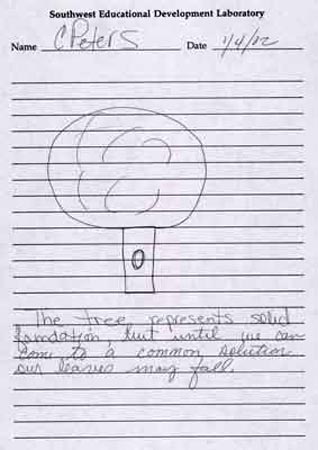 Southwest Educational Development Laboratory
Name C Peters Date 1/4/02
The tree represents solid
foundation, but until we can
come to a common solution
our leaves may fall.